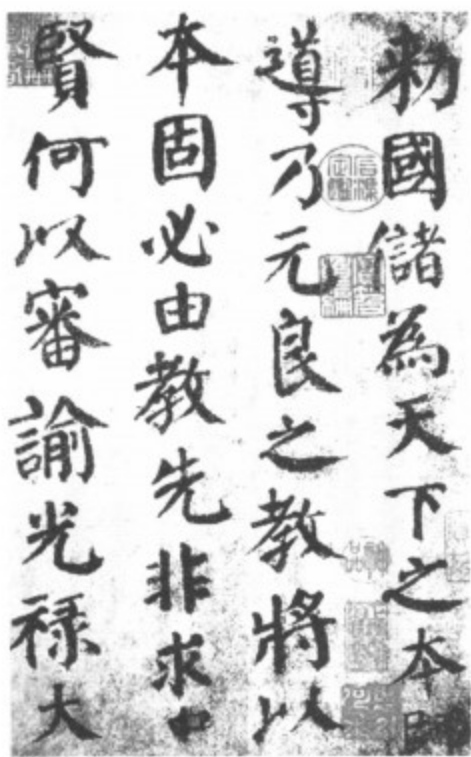 勅國儲為天下之本師
導乃元良之教將以
本固必由教先非求
賢何以審諭光祿大